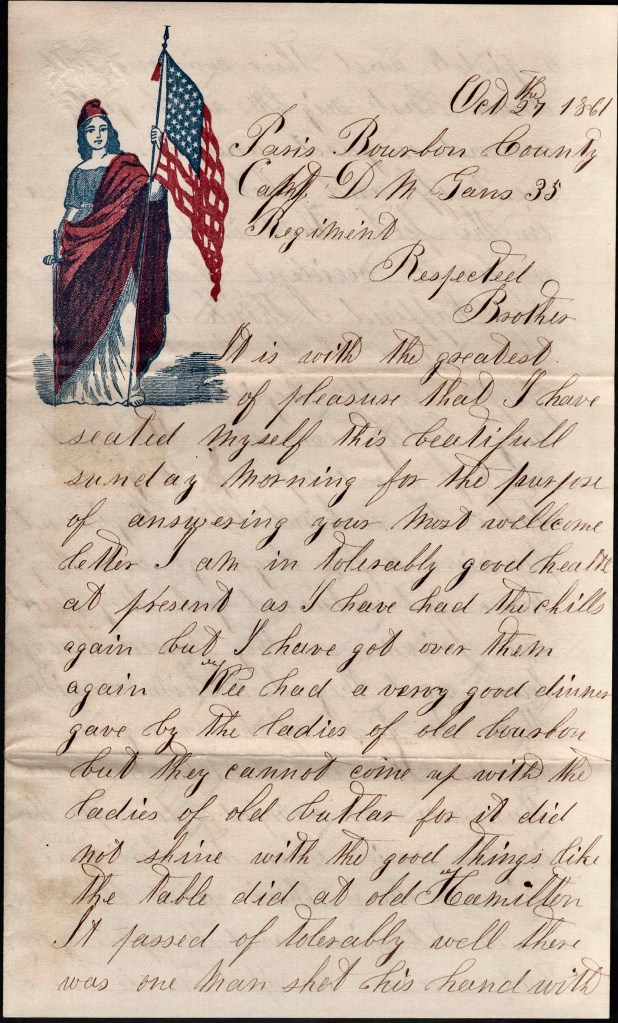 Oct the 27 1861
Paris Bourbon County
Capt. D M Gans 35
Regiment
Respected
Brother
It is with the greatest
of pleasure that I have
seated myself this beatifull
sunday morning for the purpose
of answering your most wellcome
letter I am in tolerably good health
at present as I have had the chills
again but I have got over them
again Wee had a very good dinner
gave by the ladies of old bourbon
but they cannot come up with the
ladies of old butlar for it did
not shine with the good things like
the table did at old Hamilton
It passed of tolerably well there
was one man shot his hand with